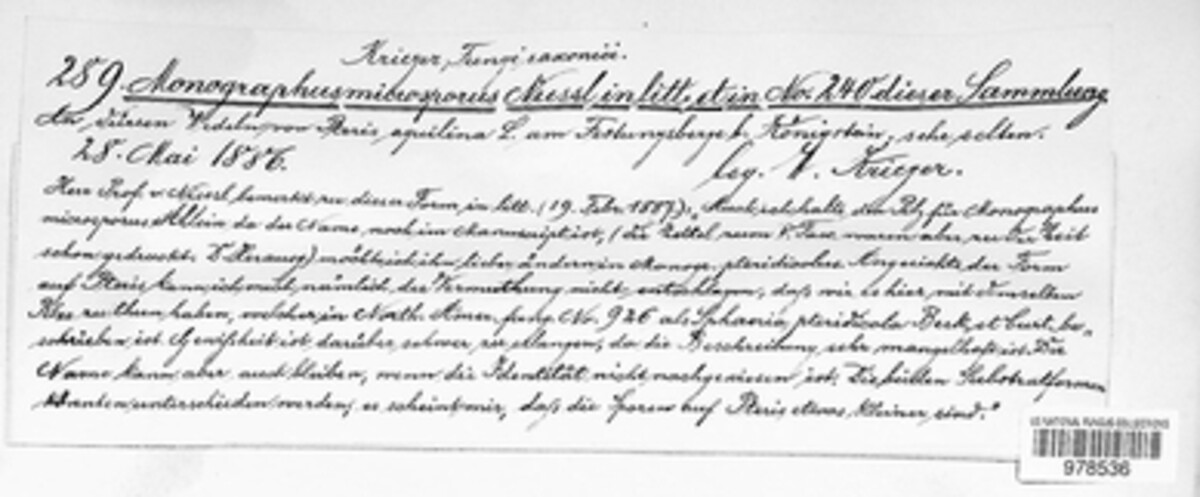 Krieger, Fungi saxonici.
289. Monographus microsporus Niessl, in litt. et in No. 240 dieser Sammlung
An dürren Wedeln von Pteris aquilina L. am Festungsberge b. Königstein, sehr selten.
28. Mai 1886. leg. W. Krieger.
Herr Prof. v. Niessl bemerkt zu dieser Form in litt. (19. Febr. 1887): „Auch ich halte den Pilz für Monographus
microsporus. Allein da der Name noch im Manuscript ist, (die Zettel waren aber zur Zeit
schon gedruckt. D. Herausg.) möchte ich ihn lieber ändern in Monogr. pteridicolus. Angesichts der Form
auf Pteris kann ich mich nämlich der Vermuthung nicht entschlagen, daß wir es hier mit demselben
Pilz zu thun haben, welcher in North. Amer. fung. No. 926 als Sphaeria pteridicola Berk. et Curt. be-
schrieben ist. Gewißheit ist darüber schwer zu erlangen, da die Beschreibung sehr mangelhaft ist. Der
Name kann aber auch bleiben, wenn die Identität nicht nachgewiesen ist. Die beiden Substratformen
könnten unterschieden werden; es scheint mir, daß die Sporen auf Pteris etwas kleiner sind."
US NATIONAL FUNGUS COLLECTIONS
978536